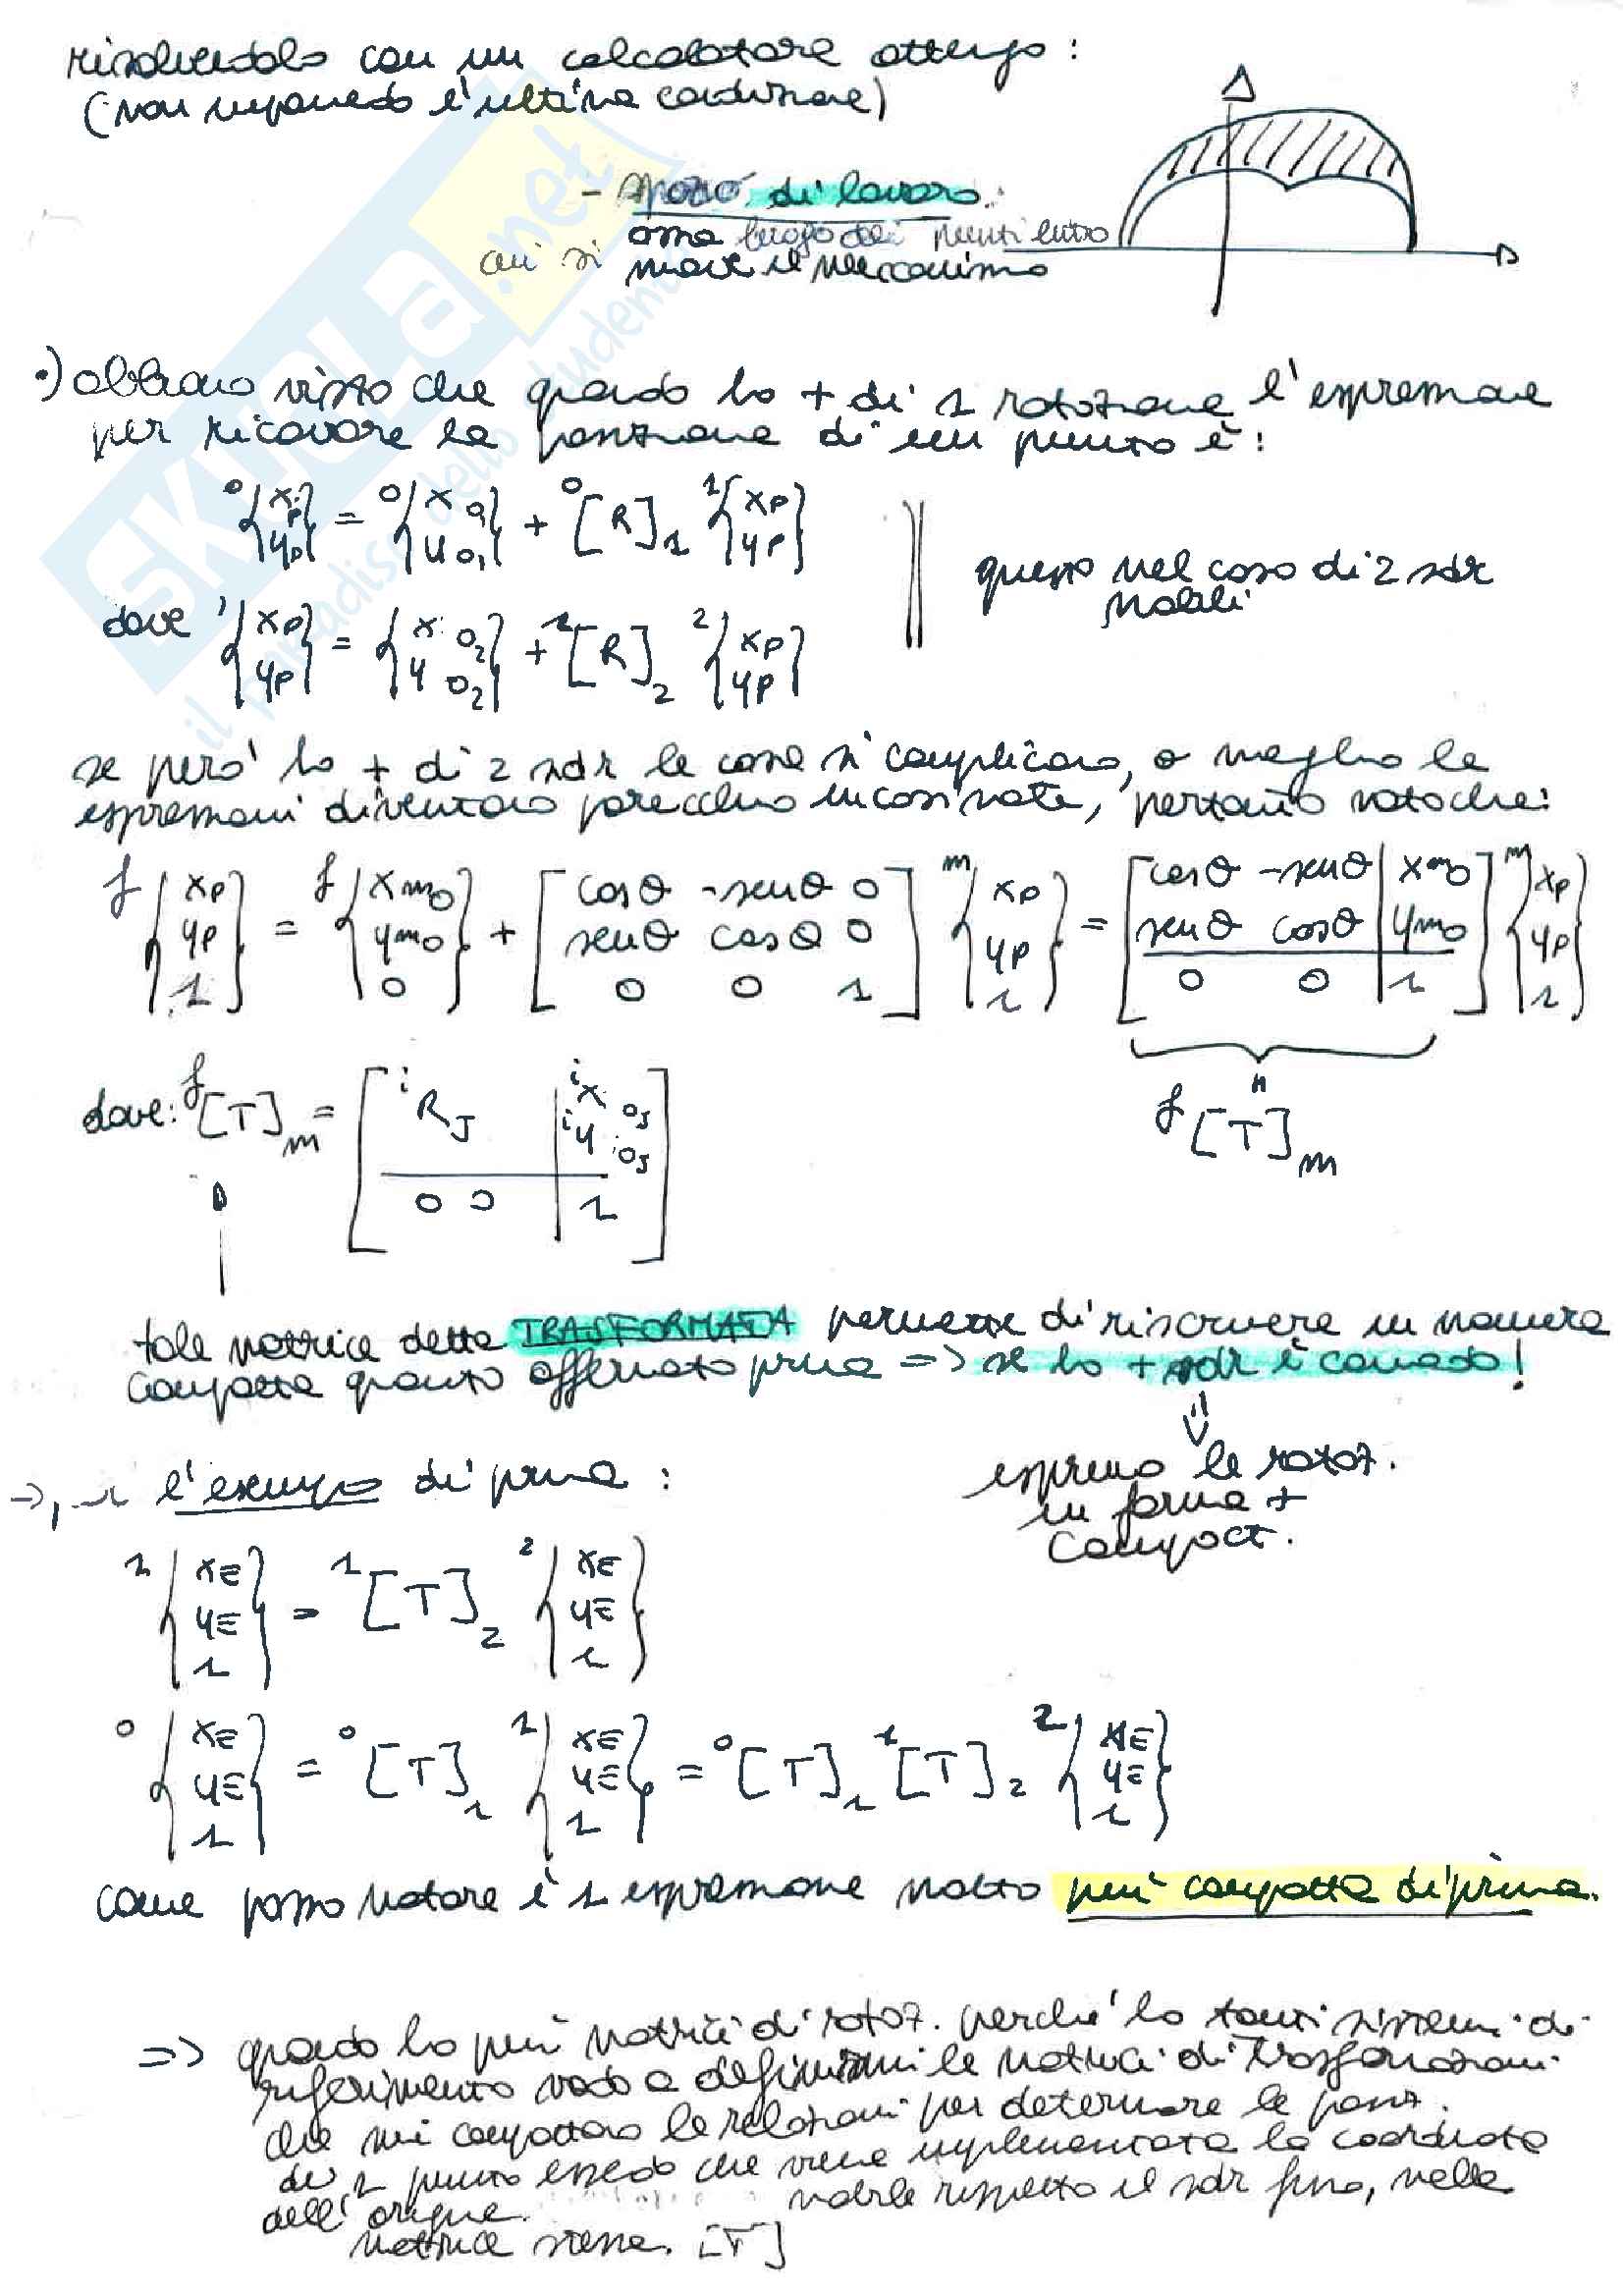 risolvendolo con un calcolatore ottengo:
(non imponendo l'ultima condizione)
- spazio di lavoro:
ossia luogo dei punti entro
cui si muove il meccanismo
•) abbiamo visto che quando ho + di 1 rotazione l'espressione
per ricavare la posizione di un punto è:
⁰{xp yp} = ⁰{x01 y01} + ⁰[R]₁ ¹{xp yp}
questo nel caso di 2 sdr
mobili
dove ¹{xp yp} = {x02 y02} + ¹[R]₂ ²{xp yp}
se però ho + di 2 sdr le cose si complicano, o meglio le
espressioni diventano parecchio incasinate, pertanto noto che:
f{xp yp 1} = f{xm0 ym0 0} + [cosθ -senθ 0 senθ cosθ 0 0 0 1] m{xp yp 1} = [cosθ -senθ | xm0 senθ cosθ | ym0 0 0 | 1] m{xp yp 1}
f[T]m
dove: f[T]m = [iRJ | ix0J iy0J 0 0 | 1]
tale matrice detta TRASFORMATA permette di riscrivere in maniera
compatta quanto affermato prima => se ho + sdr è comodo!
esprimo le rotaz.
in forma +
compatt.
l'esempio di prima:
¹{xE yE 1} = ¹[T]₂ ²{xE yE 1}
⁰{xE yE 1} = ⁰[T]₁ ¹{xE yE 1} = ⁰[T]₁ ¹[T]₂ ²{xE yE 1}
come posso notare è 1 espressione molto più compatta di prima.
=> quando ho più matrici di rotaz. perché ho tanti sistemi di
riferimento vado a definirmi le matrici di trasformazioni
che mi compattano le relazioni per determinare la posiz.
di 1 punto essendo che viene implementata la coordinata
dell'origine mobile rispetto il sdr fisso, nella
matrice stessa. [T]
SKUOLA.net
il paradiso dello studente